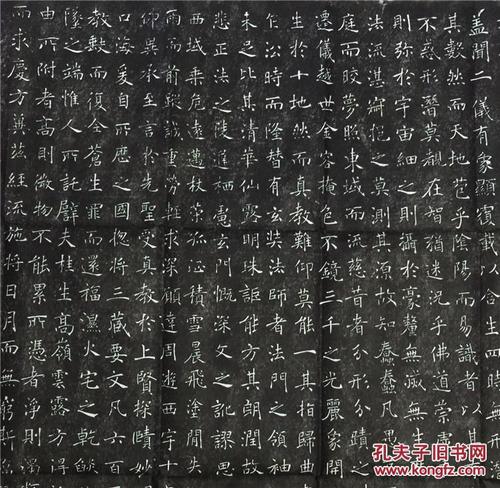 蓋聞二儀有象顯覆載以含生四時無
其數然而天地苞乎陰陽而易識者以其
不惑形潛莫覩在智猶迷況乎佛道崇虛
則弥於宇宙細之則攝於豪釐無滅無生
法流湛寂挹之莫測其源故知蠢蠢凡愚
庭而皎夢照東域而流慈昔者分形分蹟之
遷儀越世金容掩色不鏡三千之光麗象開
生於十地然而真教難仰莫能一其指歸曲
乍沿時而隆替有玄奘法師者法門之領袖
未足比其清華仙露明珠詎能方其朗潤故
悲正法之陵遲栖慮玄門慨深文之訛謬思
西域乘危遠邁杖策孤征積雪晨飛塗閒
雨而前蹤誠重勞輕求深願達周遊西宇十
仰異承至言於先聖受真教於上賢探賾妙
口海爰自所歷之國揔將三藏要文凡六百
教缺而復全蒼生罪而還福濕火宅之乾燄
墜之端惟人所託譬夫桂生高嶺雲露方得
由所附者高則微物不能累所憑者淨則濁
而求慶方冀茲經流施將日月而無窮斯
孔夫子旧书网
www.kongfz.com